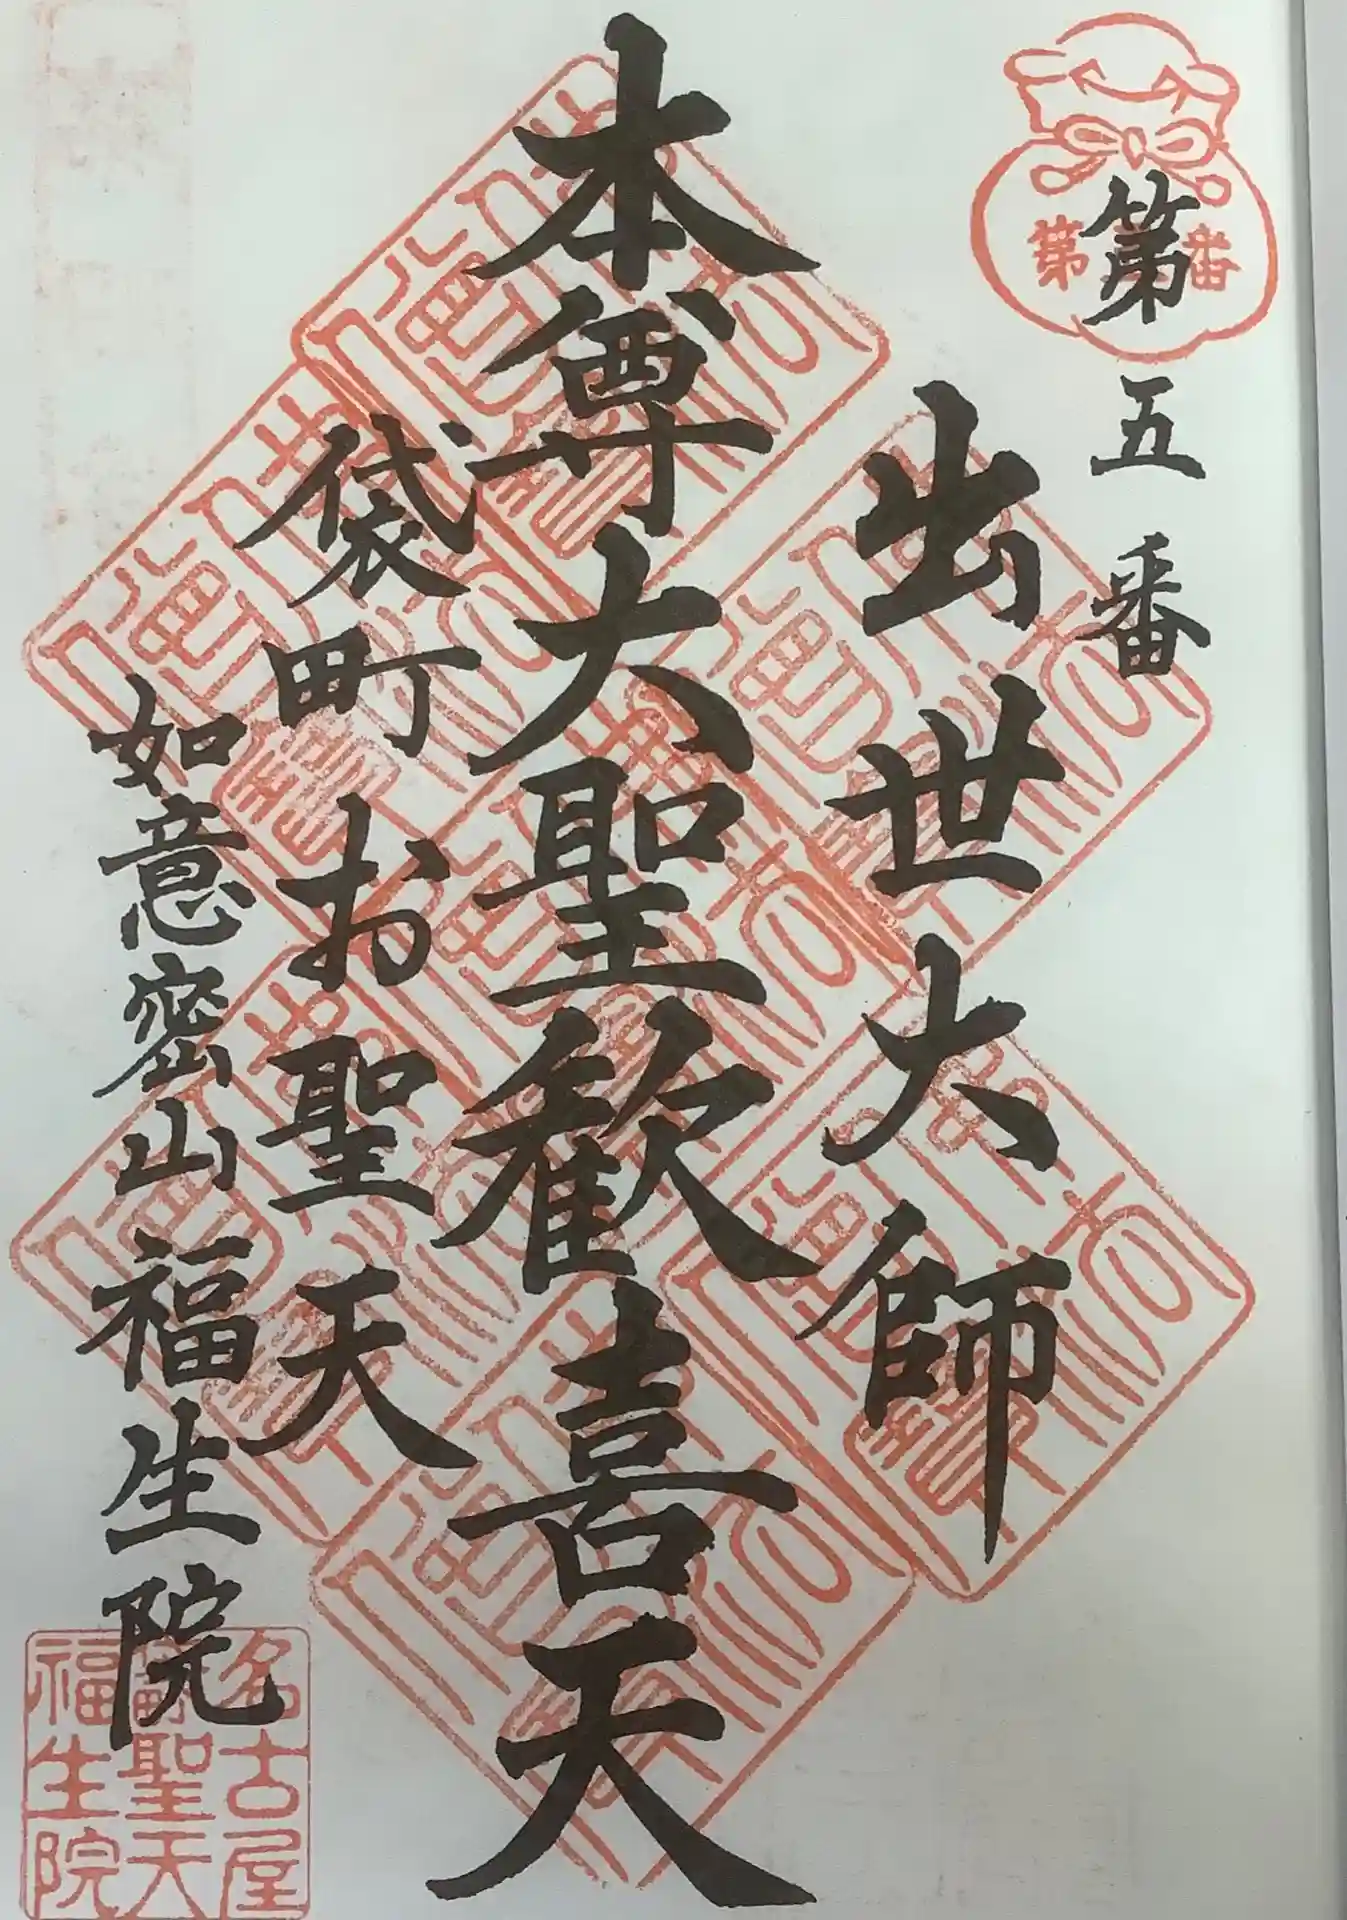 第五番
第 番
出世大師
本尊大聖歓喜天
袋町お聖天
如意密山福生院
名古屋
聖天
福生院